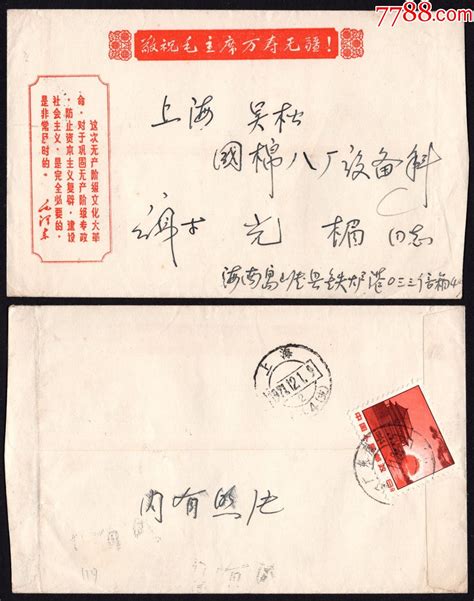 7788.com
敬祝毛主席万寿无疆!
这次无产阶级文化大革
命,对于巩固无产阶级专政
,防止资本主义复辟,建设
社会主义,是完全必要的,
是非常及时的。
毛泽东
上海 吴淞
國棉八厂设备科
光楣 同志
海南岛 县铁炉港033信箱
上海
1971.12.1.9
内有照片